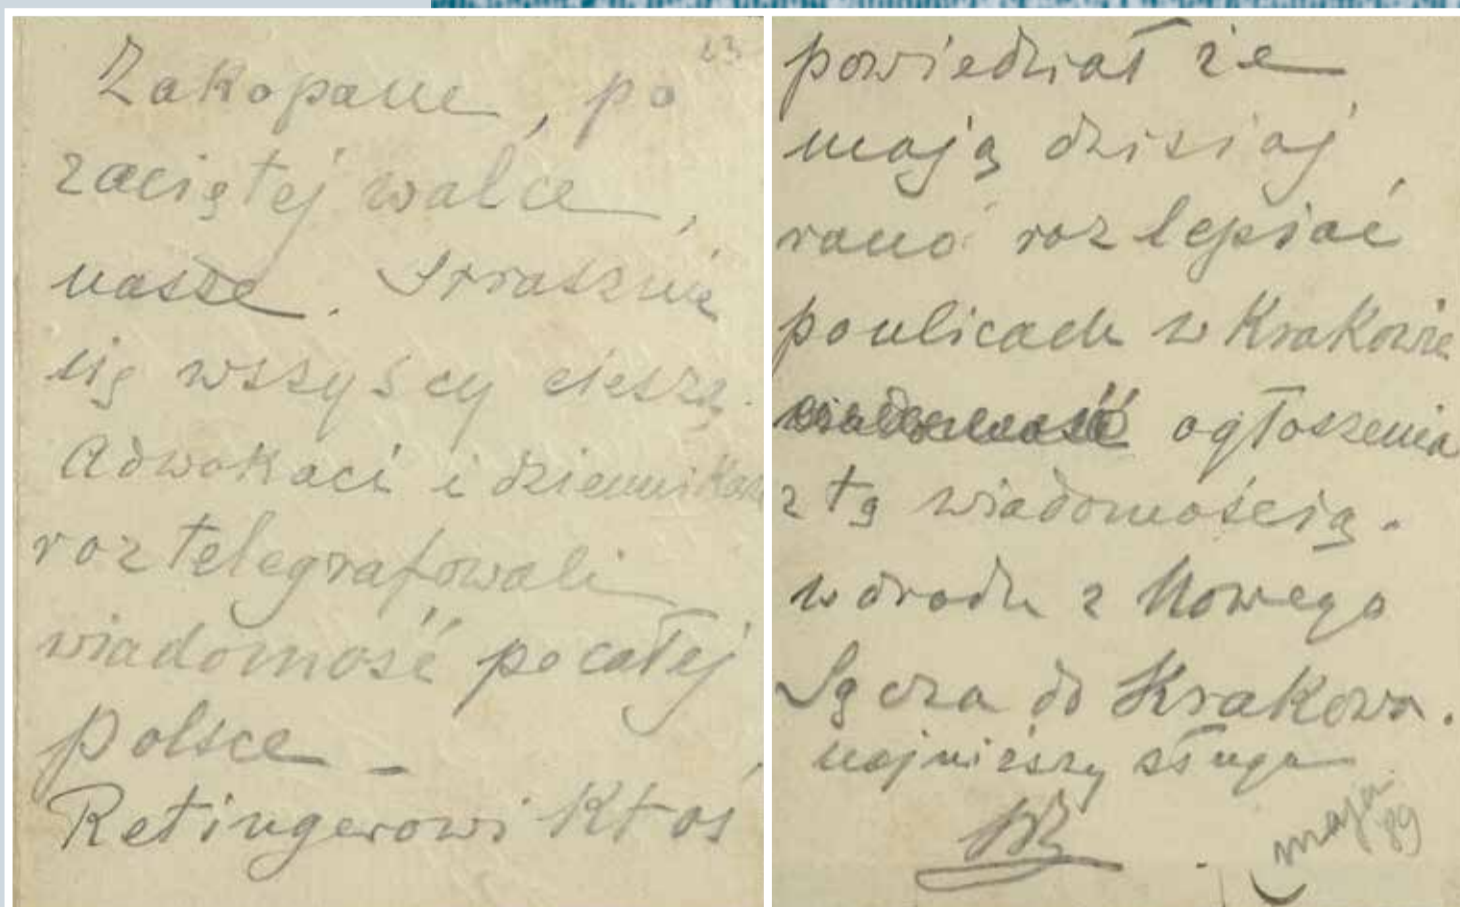 23
Zakopane, po
zaciętej walce,
nasze. Strasznie
się wszyscy cieszą.
Adwokaci i dziennikarze
roztelegrafowali
wiadomość po całej
polsce –
Retingerowi Ktoś
powiedział że
mają dzisiaj
rano rozlepiać
po ulicach w Krakowie
wiadomość ogłoszenia
z tą wiadomością.
w drodze z Nowego
Sącza do Krakowa.
najniższy sługa
maja
89